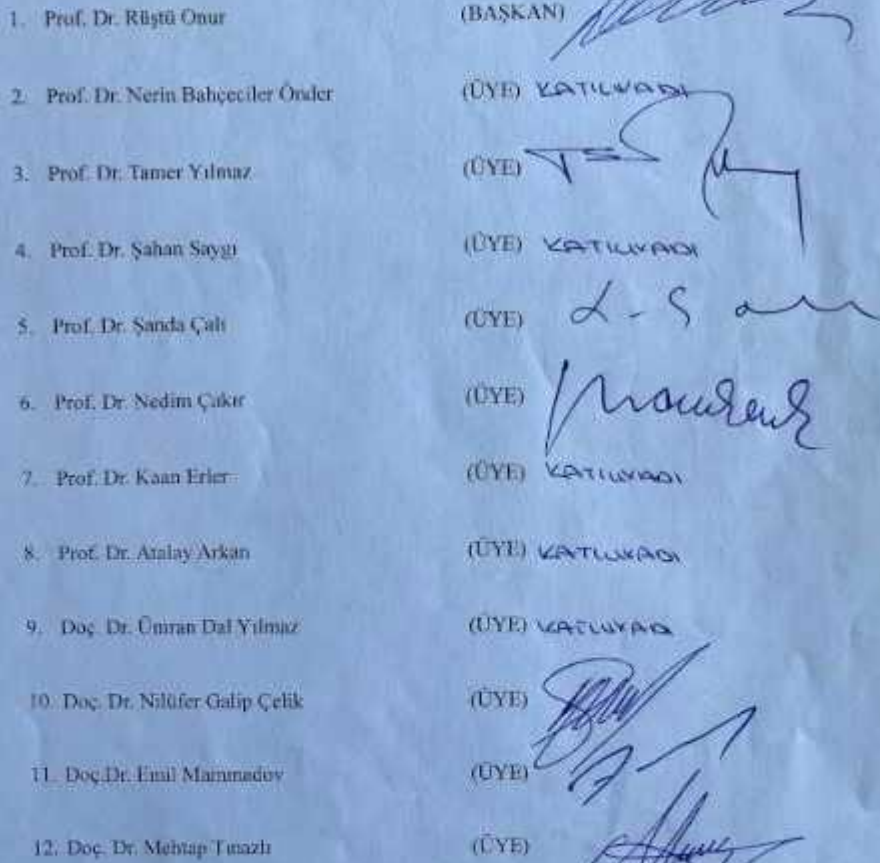 1. Prof. Dr. Rüştü Onur (BAŞKAN)
2. Prof. Dr. Nerin Bahçeciler Önder (ÜYE) KATILMADI
3. Prof. Dr. Tamer Yılmaz (ÜYE)
4. Prof. Dr. Şahan Saygı (ÜYE) KATILMADI
5. Prof. Dr. Şanda Çalı (ÜYE)
6. Prof. Dr. Nedim Çakır (ÜYE)
7. Prof. Dr. Kaan Erler (ÜYE) KATILMADI
8. Prof. Dr. Atalay Arkan (ÜYE) KATILMADI
9. Doç. Dr. Ümran Dal Yılmaz (ÜYE) KATILMADI
10. Doç. Dr. Nilüfer Galip Çelik (ÜYE)
11. Doç.Dr. Emil Mammadov (ÜYE)
12. Doç. Dr. Mehtap Tınazlı (ÜYE)